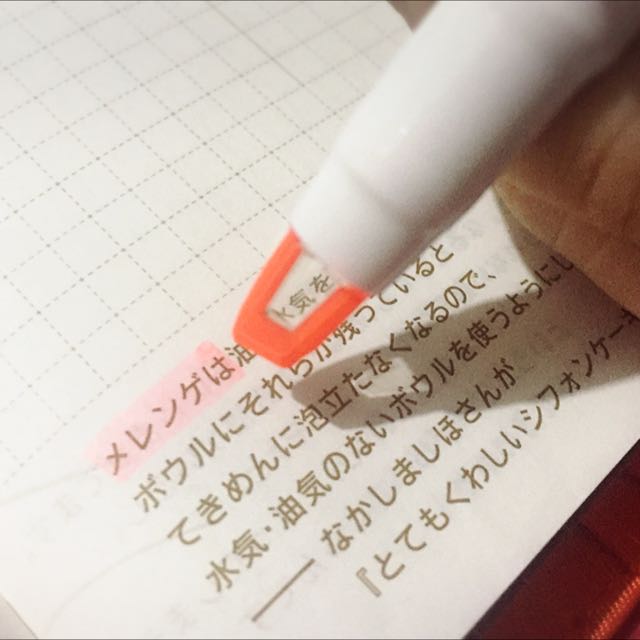 メレンゲは油 水気を
ボウルにそれらが残っていると
てきめんに泡立たなくなるので、
水気・油気のないボウルを使うようにし
── なかしましほさんが
『とてもくわしいシフォンケー